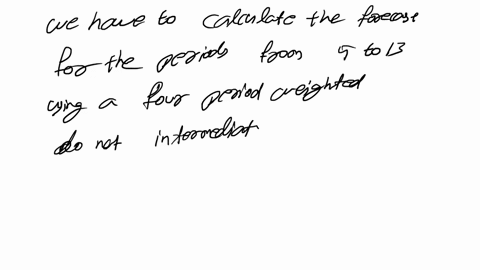 we have to calculate the forecase
for the periods from 5 to 13
using a four period weighted
do not intermediat